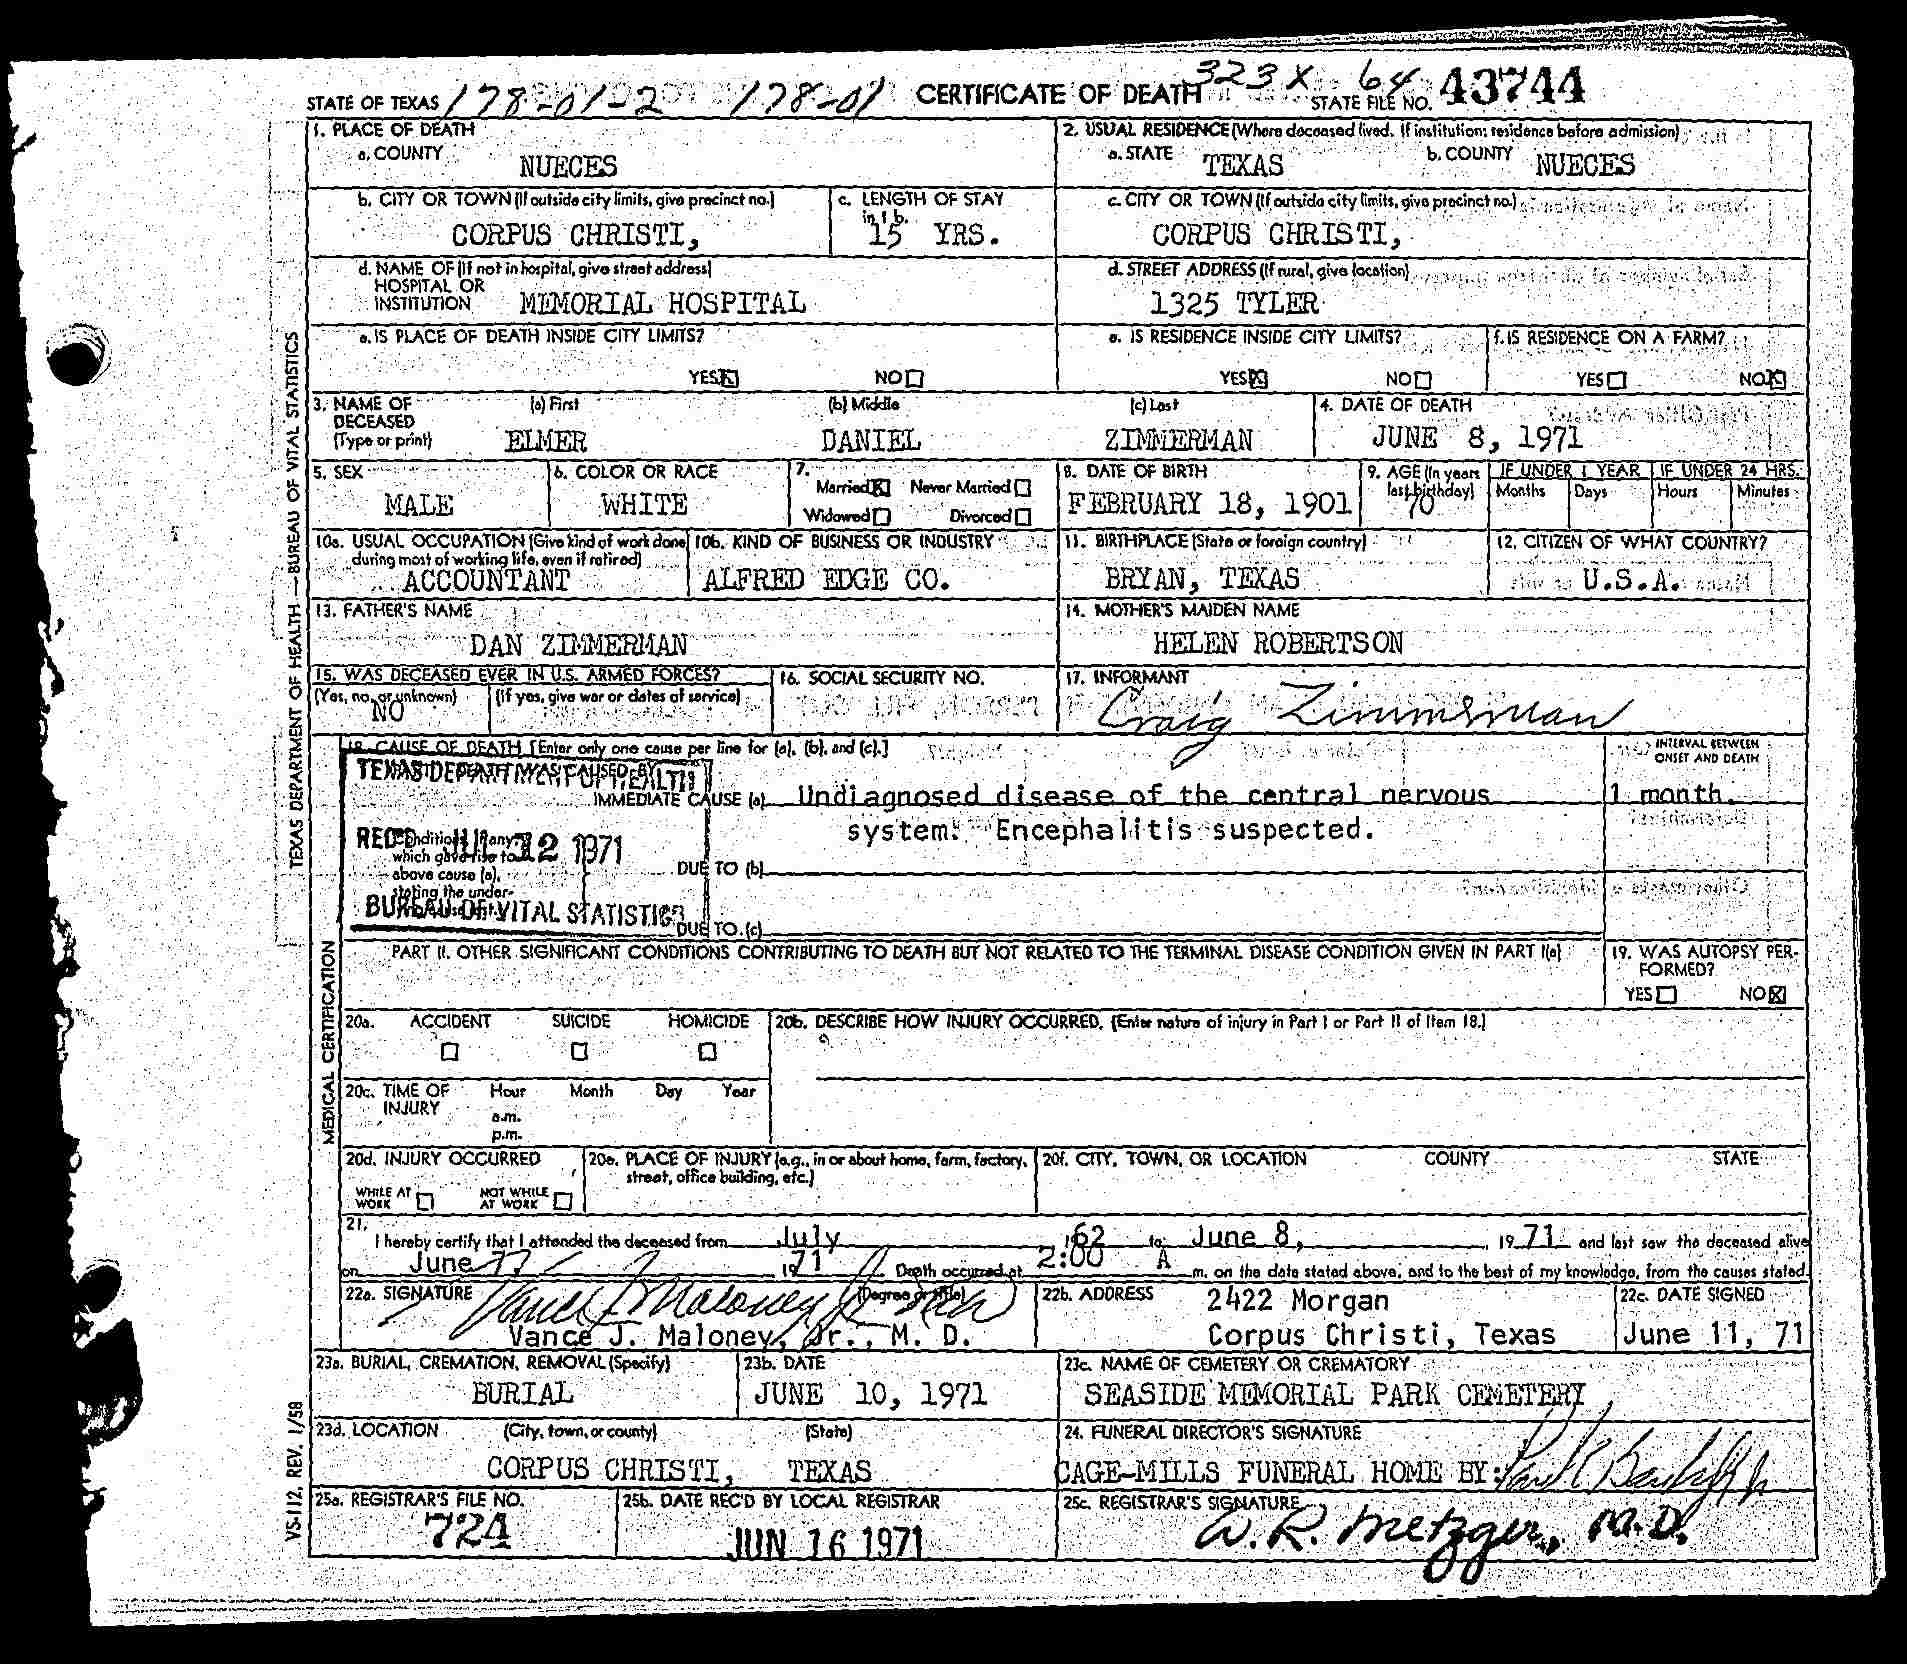 STATE OF TEXAS 178-01-2 178-01 CERTIFICATE OF DEATH 323X 64 STATE FILE NO. 43744
1. PLACE OF DEATH
a. COUNTY NUECES
2. USUAL RESIDENCE (Where deceased lived. If institution: residence before admission)
a. STATE TEXAS b. COUNTY NUECES
b. CITY OR TOWN (If outside city limits, give precinct no.) CORPUS CHRISTI,
c. LENGTH OF STAY in 1 b. 15 YRS.
c. CITY OR TOWN (If outside city limits, give precinct no.) CORPUS CHRISTI,
d. NAME OF (If not in hospital, give street address)
HOSPITAL OR
INSTITUTION MEMORIAL HOSPITAL
d. STREET ADDRESS (If rural, give location)
1325 TYLER
e. IS PLACE OF DEATH INSIDE CITY LIMITS?
YES X NO
e. IS RESIDENCE INSIDE CITY LIMITS?
YES X NO
f. IS RESIDENCE ON A FARM?
YES NO X
3. NAME OF DECEASED (Type or print)
(a) First ELMER (b) Middle DANIEL (c) Last ZIMMERMAN
4. DATE OF DEATH
JUNE 8, 1971
5. SEX MALE
6. COLOR OR RACE WHITE
7. Married X Never Married
Widowed Divorced
8. DATE OF BIRTH
FEBRUARY 18, 1901
9. AGE (In years last birthday) 70
IF UNDER 1 YEAR IF UNDER 24 HRS.
Months Days Hours Minutes
10a. USUAL OCCUPATION (Give kind of work done during most of working life, even if retired)
ACCOUNTANT
10b. KIND OF BUSINESS OR INDUSTRY
ALFRED EDGE CO.
11. BIRTHPLACE (State or foreign country)
BRYAN, TEXAS
12. CITIZEN OF WHAT COUNTRY?
U.S.A.
13. FATHER'S NAME
DAN ZIMMERMAN
14. MOTHER'S MAIDEN NAME
HELEN ROBERTSON
15. WAS DECEASED EVER IN U.S. ARMED FORCES?
(Yes, no, or unknown) (If yes, give war or dates of service)
NO
16. SOCIAL SECURITY NO.
17. INFORMANT
Craig Zimmerman
18. CAUSE OF DEATH [Enter only one cause per line for (a), (b), and (c).]
INTERVAL BETWEEN ONSET AND DEATH
PART I. DEATH WAS CAUSED BY:
TEXAS DEPARTMENT OF HEALTH
IMMEDIATE CAUSE (a) Undiagnosed disease of the central nervous 1 month.
system. Encephalitis suspected.
REC'D JUL 12 1971
Conditions, if any, which gave rise to above cause (a), stating the under-
DUE TO (b)
BUREAU OF VITAL STATISTICS
DUE TO (c)
PART II. OTHER SIGNIFICANT CONDITIONS CONTRIBUTING TO DEATH BUT NOT RELATED TO THE TERMINAL DISEASE CONDITION GIVEN IN PART I(a)
19. WAS AUTOPSY PER-
FORMED?
YES NO X
20a. ACCIDENT SUICIDE HOMICIDE
20b. DESCRIBE HOW INJURY OCCURRED. (Enter nature of injury in Part I or Part II of Item 18.)
20c. TIME OF INJURY Hour Month Day Year
a.m.
p.m.
20d. INJURY OCCURRED
WHILE AT WORK NOT WHILE AT WORK
20e. PLACE OF INJURY (e.g., in or about home, farm, factory, street, office building, etc.)
20f. CITY, TOWN, OR LOCATION COUNTY STATE
21. I hereby certify that I attended the deceased from July 1962 to June 8, 1971 and last saw the deceased alive
on June 7 1971. Death occurred at 2:00 A m. on the date stated above, and to the best of my knowledge, from the causes stated.
22a. SIGNATURE (Degree or title)
Vance J. Maloney Jr
Vance J. Maloney, Jr., M. D.
22b. ADDRESS 2422 Morgan
Corpus Christi, Texas
22c. DATE SIGNED
June 11, 71
23a. BURIAL, CREMATION, REMOVAL (Specify)
BURIAL
23b. DATE
JUNE 10, 1971
23c. NAME OF CEMETERY OR CREMATORY
SEASIDE MEMORIAL PARK CEMETERY
23d. LOCATION (City, town, or county) (State)
CORPUS CHRISTI, TEXAS
24. FUNERAL DIRECTOR'S SIGNATURE
CAGE-MILLS FUNERAL HOME BY:
25a. REGISTRAR'S FILE NO.
724
25b. DATE REC'D BY LOCAL REGISTRAR
JUN 16 1971
25c. REGISTRAR'S SIGNATURE
W. R. Metzger, M.D.
TEXAS DEPARTMENT OF HEALTH—BUREAU OF VITAL STATISTICS
MEDICAL CERTIFICATION
VS-112, REV. 1/58